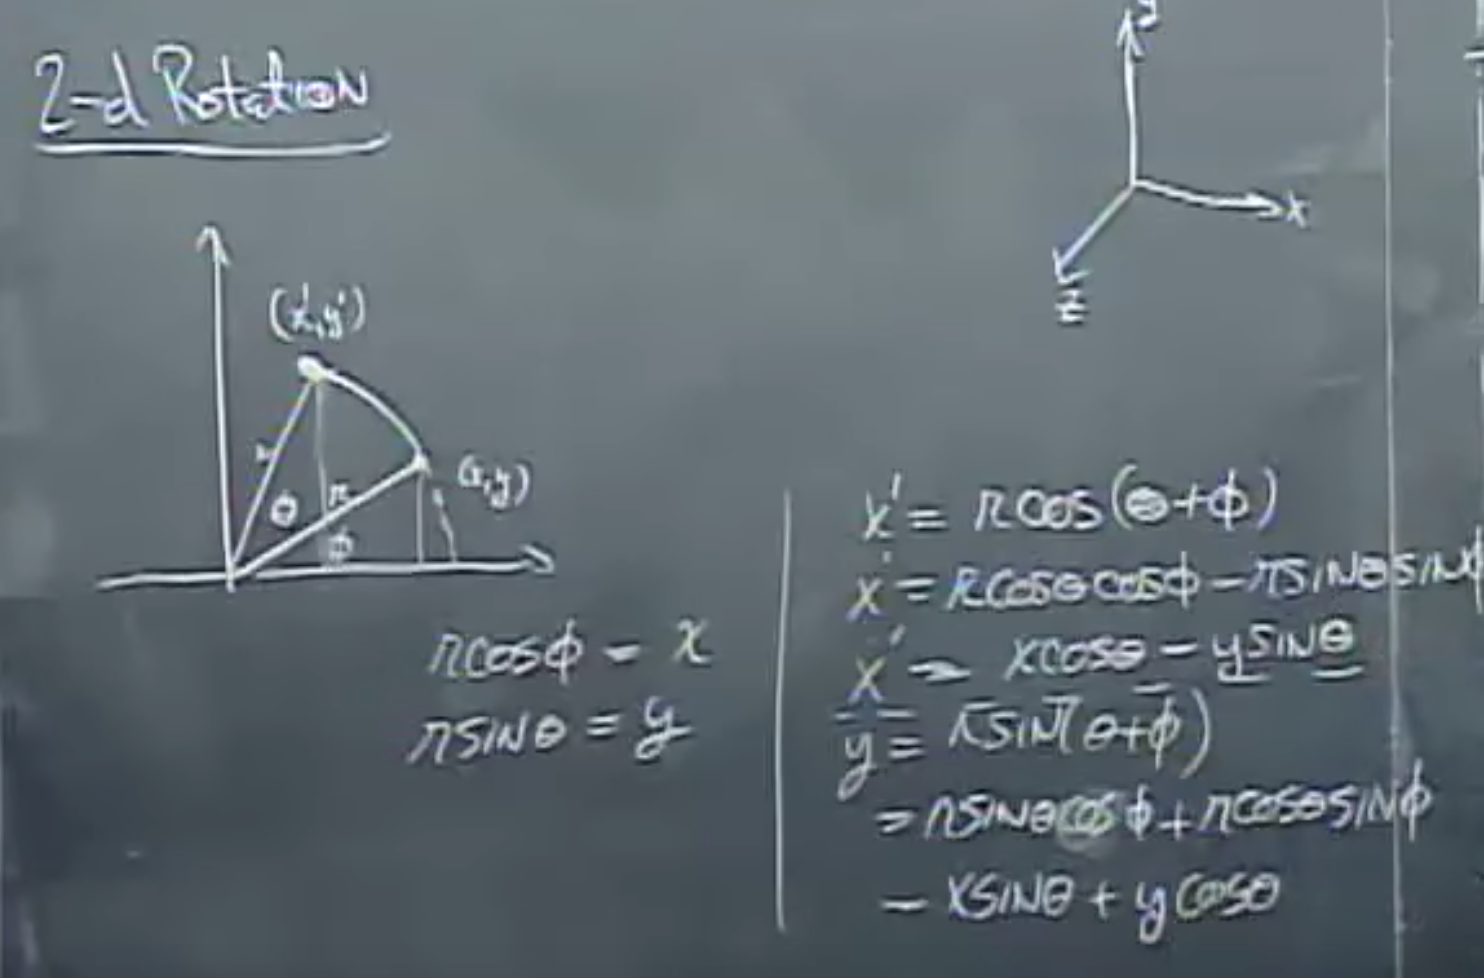 2-d Rotation
y
x
z
(x',y')
r
θ
r
(x,y)
φ
rcosφ = x
rsinθ = y
x' = rcos(θ+φ)
x' = rcosθcosφ - rsinθsinφ
x' = xcosθ - ysinθ
y = rsin(θ+φ)
= rsinθcosφ + rcosθsinφ
= xsinθ + ycosθ